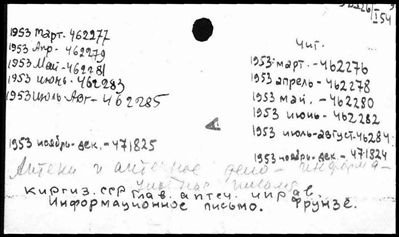 I54
1953 март. - 462277
1953 Апр. - 462279
1953 Май - 462281
1953 июнь - 462283
1953 июль Авг - 462285
1953 ноябрь-дек. - 471825
Чит.
1953 март. - 462276
1953 апрель - 462278
1953 май. - 462280
1953 июнь - 462282
1953 июль-август-46284
1953 ноябрь-дек. - 471824
Аптеки и аптечное дело - информа-
письма
Киргиз. ССР Глав. аптеч. управ.
Информационное письмо. Фрунзе.